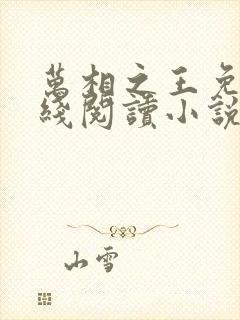 萬相之王免
綫閱讀小說
山雪